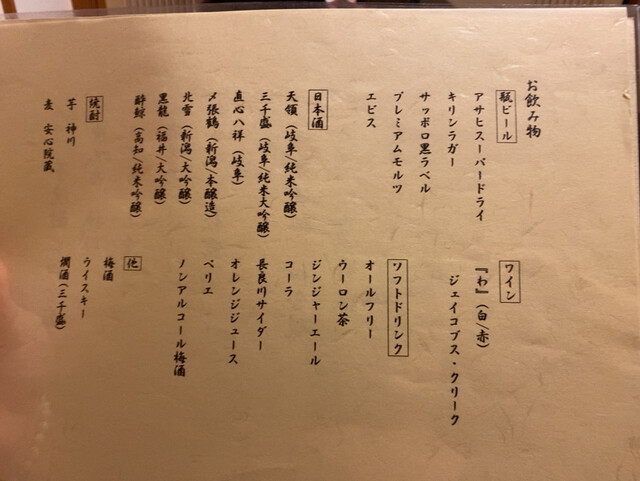 お飲み物
瓶ビール
アサヒスーパードライ
キリンラガー
サッポロ黒ラベル
プレミアムモルツ
エビス
日本酒
天領（岐阜/純米吟醸）
三千盛（岐阜/純米大吟醸）
直心八祥（岐阜）
〆張鶴（新潟/本醸造）
北雪（新潟/大吟醸）
黒龍（福井/大吟醸）
酔鯨（高知/純米吟醸）
焼酎
芋 神川
麦 安心院蔵
ワイン
『わ』（白/赤）
ジェイコブス・クリーク
ソフトドリンク
オールフリー
ウーロン茶
ジンジャーエール
コーラ
長良川サイダー
オレンジジュース
ペリエ
ノンアルコール梅酒
他
梅酒
ウイスキー
燗酒（三千盛）